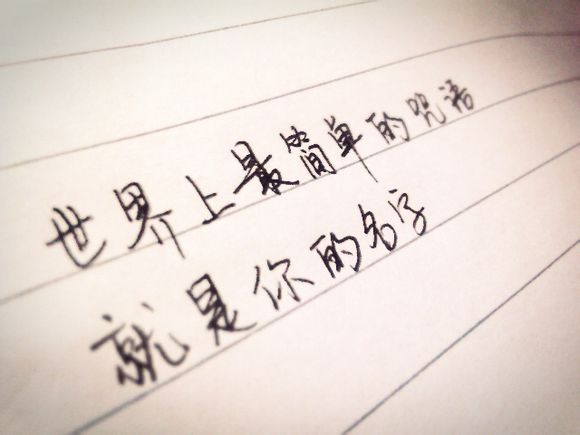 世界上最简单的咒语
就是你的名字